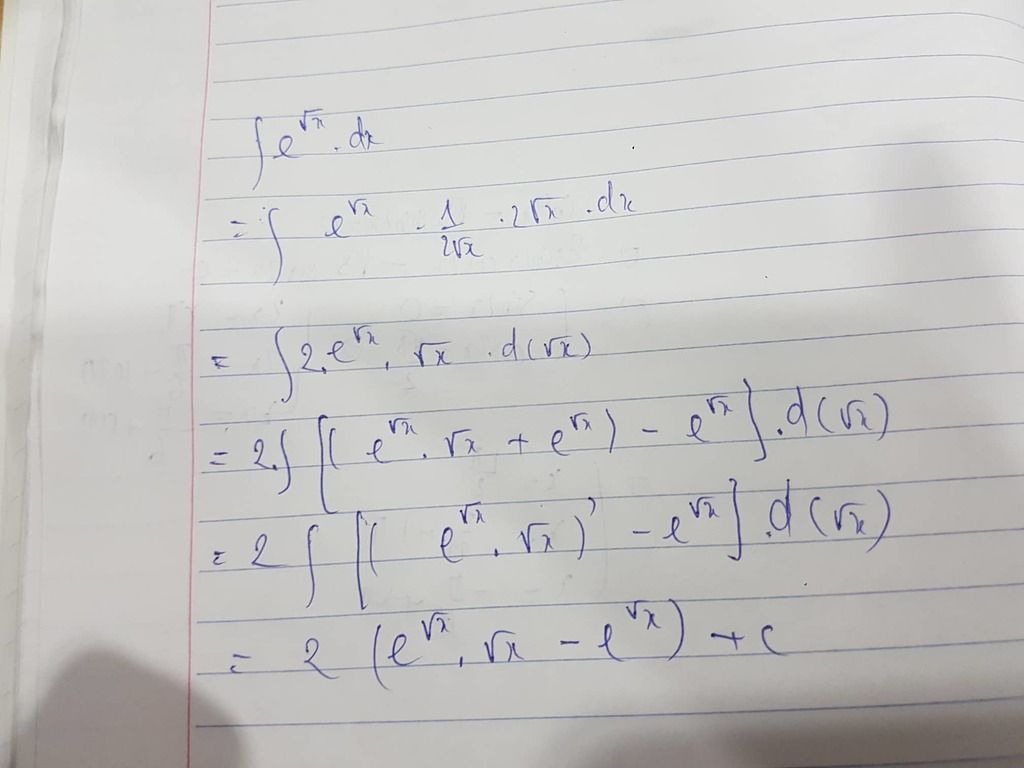 ∫ e^√x . dx
= ∫ e^√x . 1/2√x . 2√x . dx
= ∫ 2. e^√x . √x . d(√x)
= 2.∫ [( e^√x . √x + e^√x ) - e^√x ] .d(√x)
= 2 ∫ [( e^√x . √x )' - e^√x ] .d(√x)
= 2 (e^√x . √x - e^√x ) + c